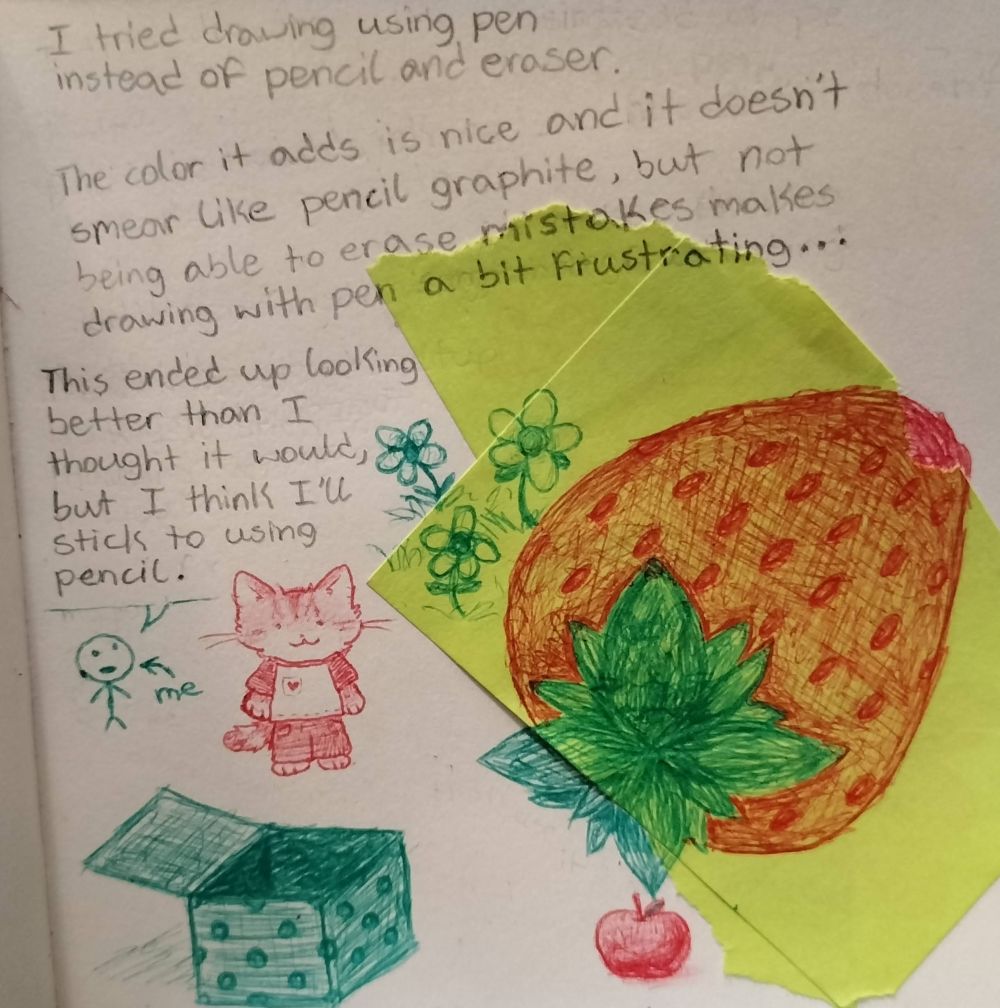 I tried drawing using pen
instead of pencil and eraser.
The color it adds is nice and it doesn't
smear like pencil graphite, but not
being able to erase mistakes makes
drawing with pen a bit frustrating...
This ended up looking
better than I
thought it would,
but I think I'll
stick to using
pencil.
me